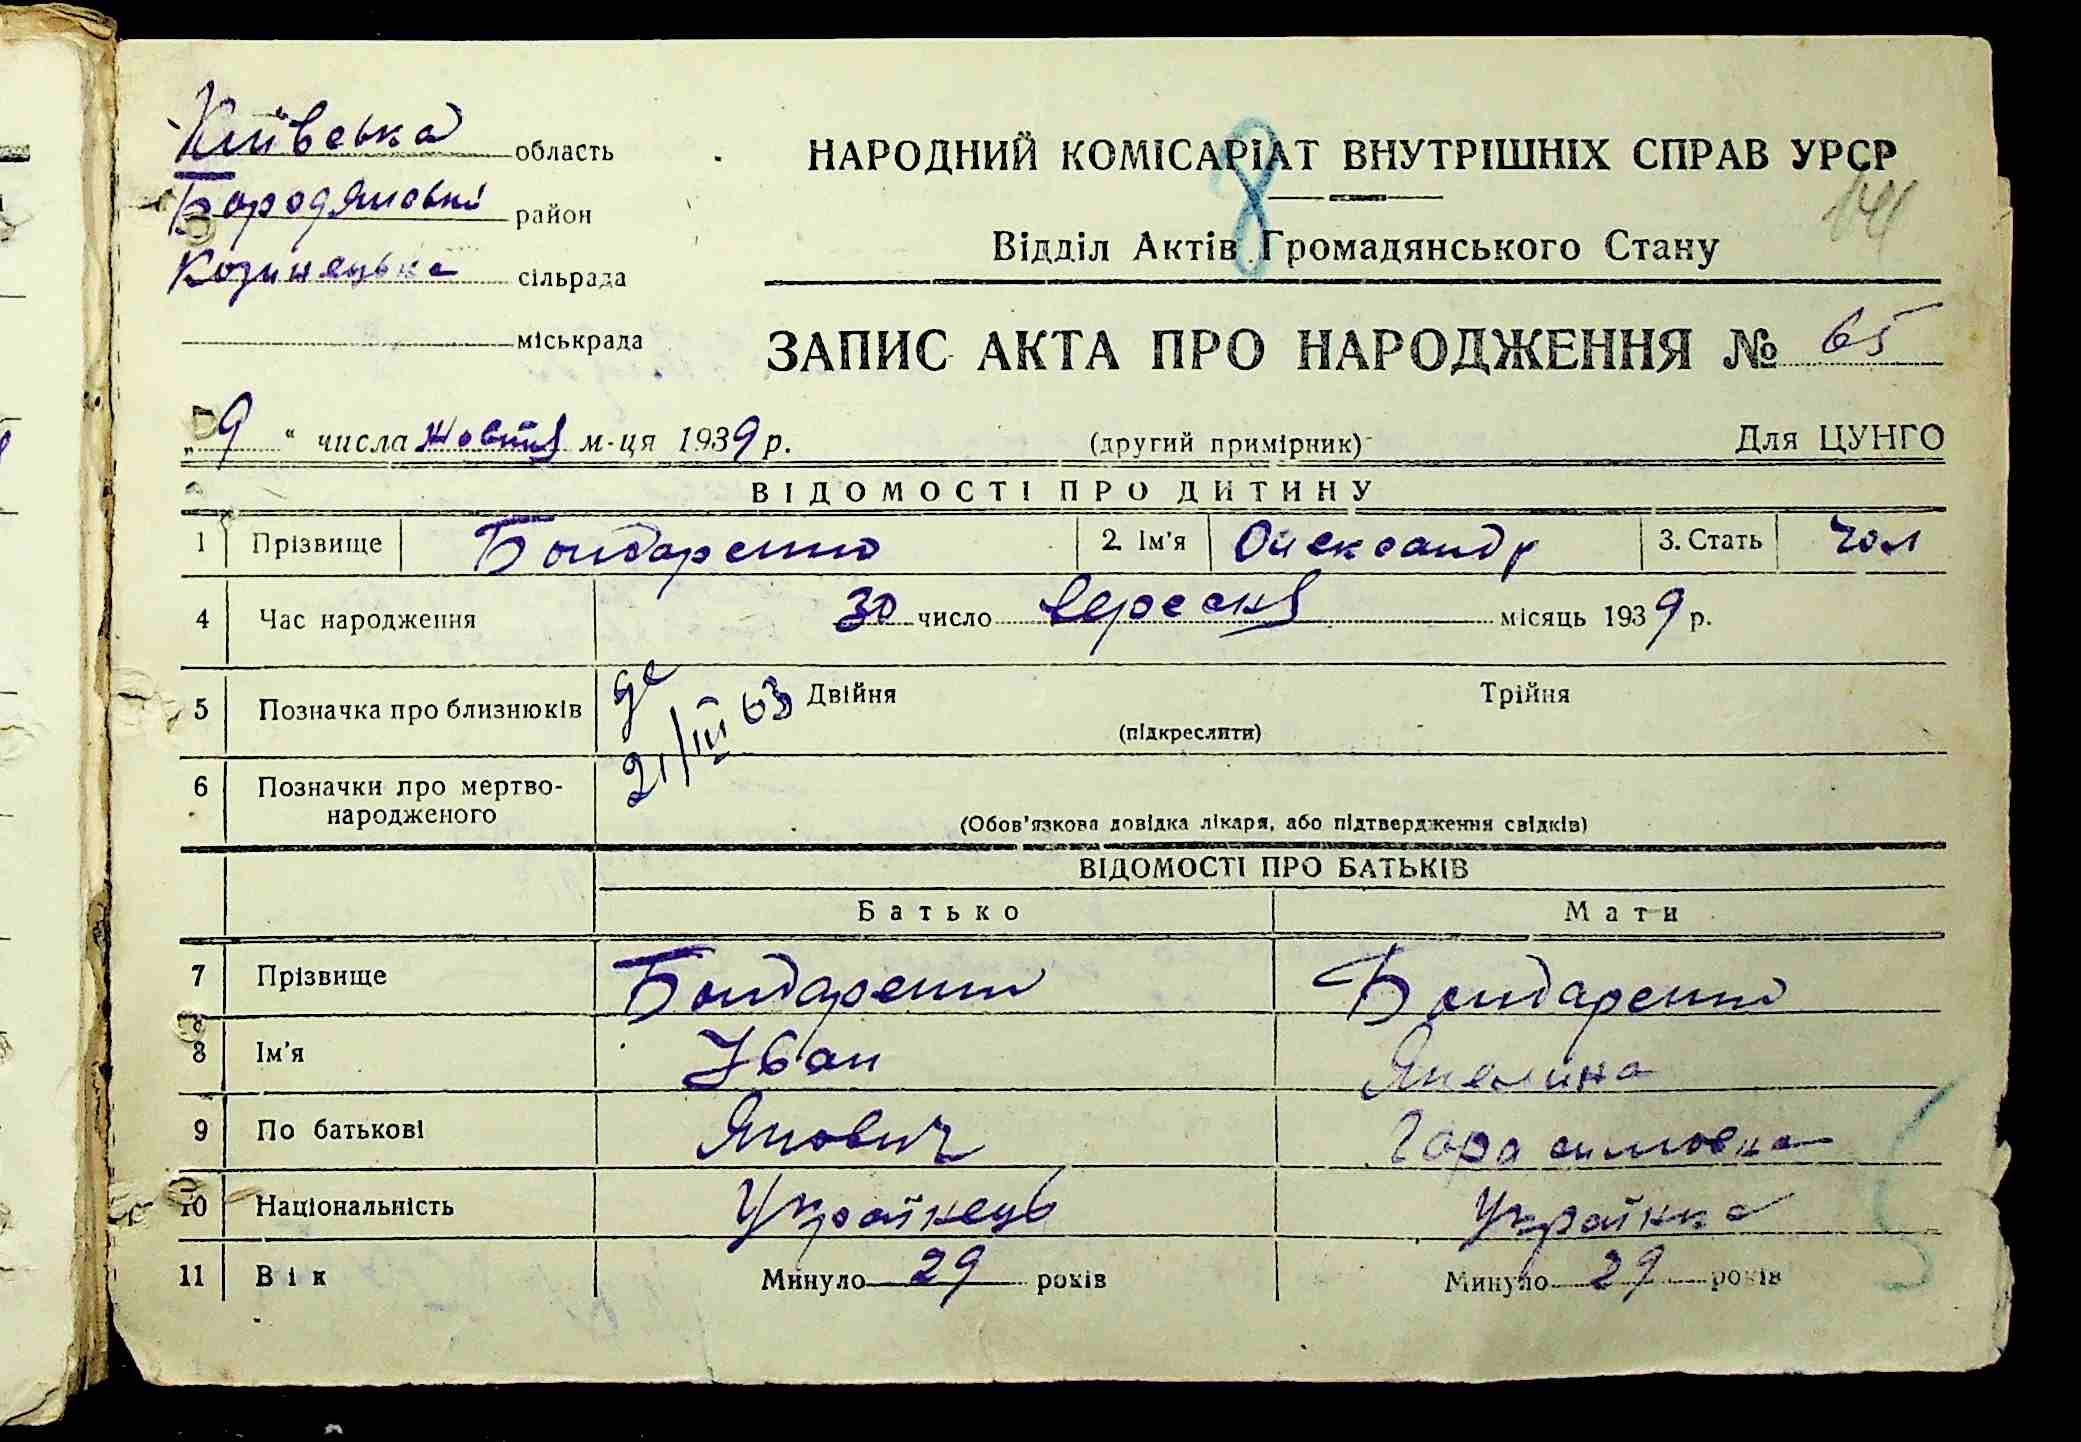 Київська область
Бородянський район
Козинецька сільрада
міськрада
НАРОДНИЙ КОМІСАРІАТ ВНУТРІШНІХ СПРАВ УРСР
8
Відділ Актів Громадянського Стану
ЗАПИС АКТА ПРО НАРОДЖЕННЯ № 65
„9“ числа жовтня м-ця 1939 р. (другий примірник) Для ЦУНГО
ВІДОМОСТІ ПРО ДИТИНУ
1 Прізвище Бондаренко 2. Ім'я Олександр 3. Стать чол
4 Час народження 30 число вересня місяць 1939 р.
5 Позначка про близнюків Двійня Трійня
(підкреслити)
21/III 63
6 Позначки про мертво-
народженого
(Обов'язкова довідка лікаря, або підтвердження свідків)
ВІДОМОСТІ ПРО БАТЬКІВ
Батько Мати
7 Прізвище Бондаренко Бондаренко
8 Ім'я Іван
9 По батькові Янович Герасимовна
10 Національність Українець Українка
11 Вік Минуло 29 років Минуло 29 років